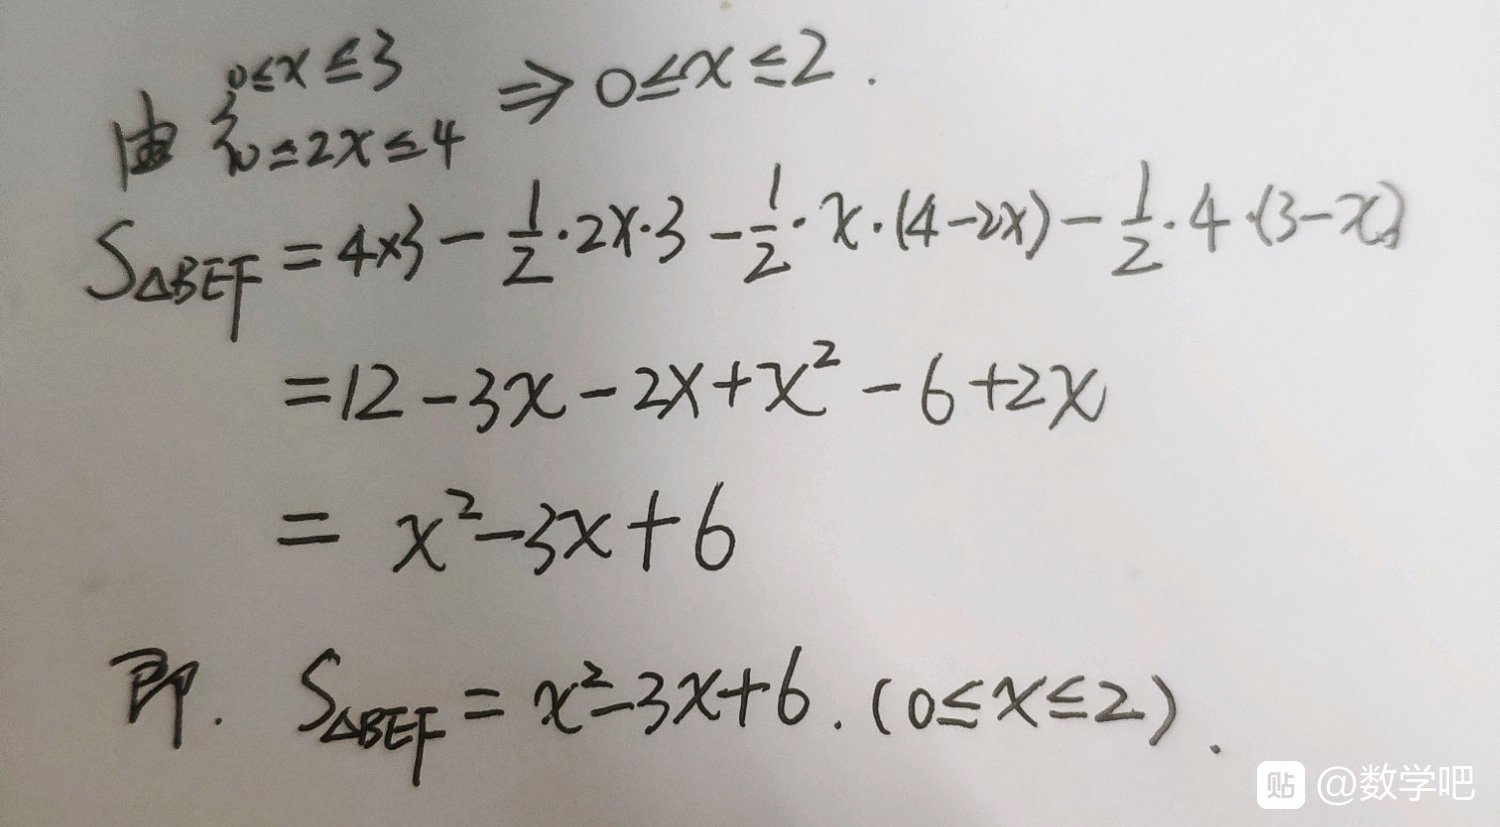 由 { 0≤x≤3
0≤2x≤4 ⇒ 0≤x≤2.
S△BEF = 4×3 - 1/2·2x·3 - 1/2·x·(4-2x) - 1/2·4·(3-x)
=12-3x-2x+x²-6+2x
= x²-3x+6
即. S△BEF = x²-3x+6. (0≤x≤2).
贴 @数学吧